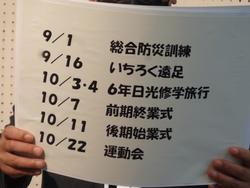 9/1 総合防災訓練
9/16 いちろく遠足
10/3・4 6年日光修学旅行
10/7 前期終業式
10/11 後期始業式
10/22 運動会